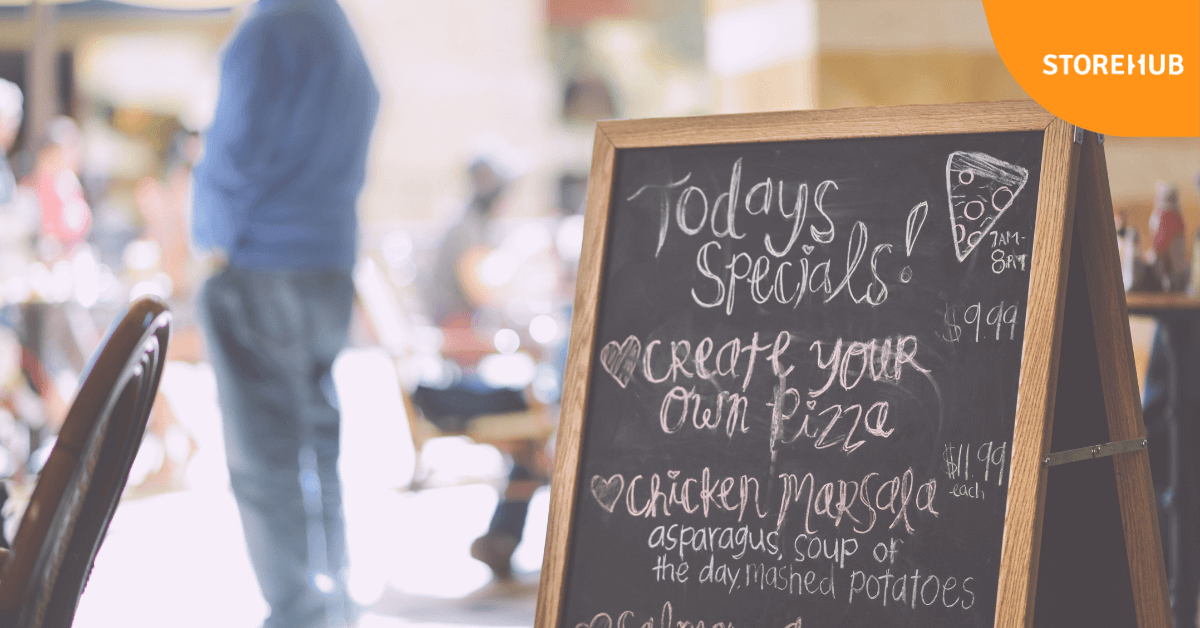 STOREHUB
Todays
Specials!
7AM-
8PM
$9.99
Create Your
Own Pizza
$11.99
each
Chicken Marsala
asparagus, soup of
the day, mashed potatoes